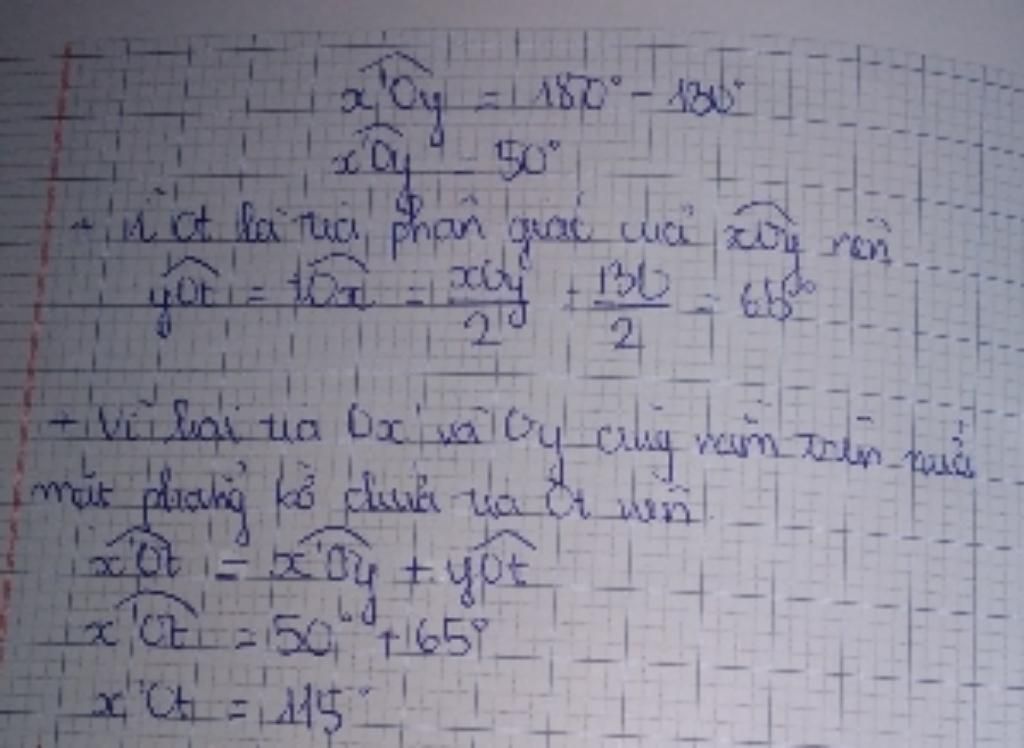 x'Oy = 180° - 130°
x'Oy = 50°
+ Vì Ot là tia phân giác của xOy nên
yOt = tOx = xOy/2 = 130/2 = 65°
+ Vì hai tia Ox' và Oy cùng nằm trên nửa
mặt phẳng bờ chứa tia Ot nên
x'Ot = x'Oy + yOt
x'Ot = 50° + 65°
x'Ot = 115°